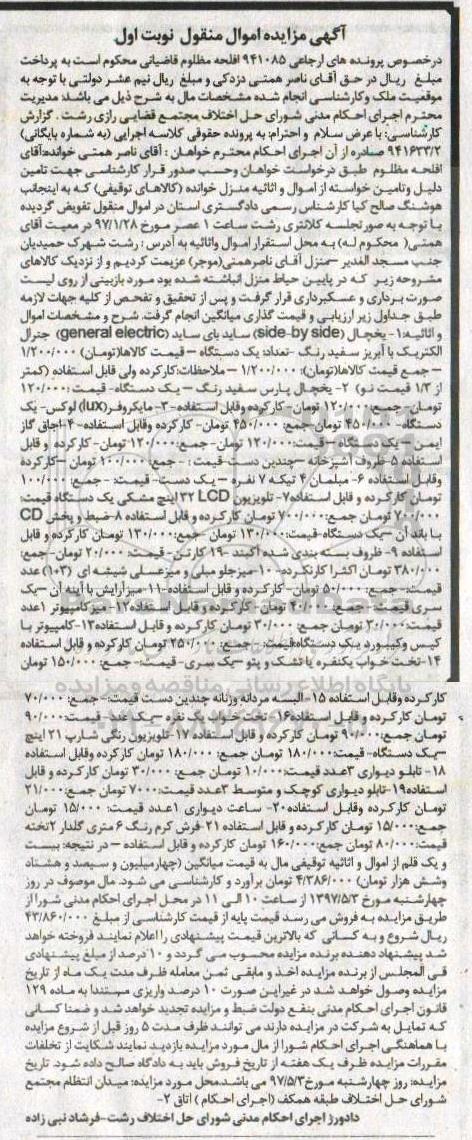 آگهی مزایده اموال منقول نوبت اول
درخصوص پرونده های ارجاعی ۹۴۱۰۸۵ افلحه مظلوم قاضیانی محکوم است به پرداخت
مبلغ ریال در حق آقای ناصر همتی دزدکی و مبلغ ریال نیم عشر دولتی با توجه به
موقعیت ملک وکارشناسی انجام شده مشخصات مال به شرح ذیل می باشد: مدیریت
محترم اجرای احکام مدنی شورای حل اختلاف مجتمع قضایی رازی رشت . گزارش
کارشناسی: با عرض سلام و احترام: به پرونده حقوقی کلاسه اجرایی (به شماره بایگانی)
۹۴۱۶۳۳/۲ صادره از آن اجرای احکام محترم خواهان : آقای ناصر همتی خوانده:آقای
افلحه مظلوم طبق درخواست خواهان وحسب صدور قرار کارشناسی جهت تامین
دلیل وتامین خواسته از اموال و اثاثیه منزل خوانده (کالاهای توقیفی) که به اینجانب
هوشنگ صالح کیا کارشناس رسمی دادگستری استان در اموال منقول تفویض گردیده
با توجه به صورتجلسه کلانتری رشت ساعت ۱ عصر مورخ ۹۷/۱/۲۸ در معیت آقای
همتی( محکوم له) به محل استقرار اموال واثاثیه به آدرس : رشت شهرک حمیدیان
جنب مسجد الغدیر –منزل آقای ناصرهمتی(موجر) عزیمت کردیم و از نزدیک کالاهای
مشروحه زیر که در پایین حیاط منزل انباشته شده بود مورد بازبینی از روی لیست
صورت برداری و عسکبرداری قرار گرفت و پس از تحقیق و تفحص از کلیه جهات لازمه
طبق جداول زیر ارزیابی و قیمت گذاری میانگین انجام گرفت. شرح و مشخصات اموال
و اثاثیه:۱- یخچال (side-by side) ساید بای ساید (general electric) جنرال
الکتریک با آبریز سفید رنگ -تعداد: یک دستگاه – قیمت کالاها(تومان) ۱/۲۰۰/۰۰۰
– جمع قیمت کالاها(تومان): ۱/۲۰۰/۰۰۰ – ملاحظات:کارکرده ولی قابل استفاده (کمتر
از ۱/۳ قیمت نو) ۲- یخچال پارس سفید رنگ – یک دستگاه- قیمت :۱۲۰/۰۰۰
تومان- جمع:۱۲۰/۰۰۰ تومان-کارکرده وقابل استفاده-۳-مایکروفر(lux) لوکس- یک
دستگاه- ۴۵۰/۰۰۰ تومان جمع: ۴۵۰/۰۰۰ تومان- کارکرده وقابل استفاده-۴-اجاق گاز
ایمن –یک دستگاه –قیمت:۱۲۰/۰۰۰ تومان- جمع:۱۲۰/۰۰۰ تومان-کارکرده و قابل
استفاده ۵-ظروف آشپزخانه –چندین دست- قیمت : - جمع:۱۰۰/۰۰۰ تومان –کارکرده
وقابل استفاده ۶- مبلمان ۴ تیکه ۷ نفره – یک دست- قیمت: - جمع: ۱۰۰/۰۰۰
تومان کارکرده و قابل استفاده۷- تلویزیون LCD ۳۲ اینچ مشکی یک دستگاه قیمت:
۷۰۰/۰۰۰ تومان جمع:۷۰۰/۰۰۰ تومان کارکرده و قابل استفاده ۸-ضبط و پخش CD
با باند آن –یک دستگاه-قیمت:۱۳۰/۰۰۰ تومان جمع:۱۳۰/۰۰۰ تومان کارکرده و قابل
استفاده ۹- ظروف بسته بندی شده آکبند -۱۹ کارتن- قیمت: ۲۰/۰۰۰ تومان- جمع:
۳۸۰/۰۰۰ تومان اکثرا کارنکرده-۱۰-میزجلو مبلی و میزعسلی شیشه ای (۱۰۳) عدد
قیمت:- جمع: ۵۰/۰۰۰ تومان-کارکرده و قابل استفاده-۱۱-میزآرایش با آینه آن –یک
سری قیمت:- جمع:۴۰/۰۰۰ تومان- کارکرده و قابل استفاده۱۲-میزکامپیوتر ۱عدد
قیمت:۳۰/۰۰۰ تومان جمع: ۳۰/۰۰۰ تومان کارکرده و قابل استفاده۱۳-کامپیوتر با
کیس وکیبورد یک دستگاه:قیمت:- جمع: ۲۵۰/۰۰۰ تومان کارکرده و قابل استفاده
۱۴-تخت خواب یکنفره با تشک و پتو –یک سری- قیمت:- جمع: ۱۵۰/۰۰۰ تومان
کارکرده وقابل استفاده ۱۵-البسه مردانه وزنانه چندین دست قیمت: - جمع: ۷۰/۰۰۰
تومان کارکرده و قابل استفاده۱۶- تخت خواب یک نفره –یک عدد- قیمت:۹۰/۰۰۰
تومان جمع:۹۰/۰۰۰ تومان کارکرده و قابل استفاده ۱۷-تلویزیون رنگی شارپ ۲۱ اینچ
–یک دستگاه- قیمت:۱۸۰/۰۰۰ تومان جمع: ۱۸۰/۰۰۰ تومان کارکرده وقابل استفاده
۱۸- تابلو دیواری ۳عدد قیمت:۱۰/۰۰۰ تومان جمع: ۳۰/۰۰۰ تومان کارکرده و قابل
استفاده۱۹-تابلو دیواری کوچک و متوسط ۳عدد قیمت:۷۰۰۰ تومان جمع:۲۱/۰۰۰
تومان کارکرده وقابل استفاده۲۰- ساعت دیواری ۱عدد قیمت: ۱۵/۰۰۰ تومان
جمع:۱۵/۰۰۰ تومان کارکرده و قابل استفاده ۲۱-فرش کرم رنگ ۶متری گلدار ۲تخته
قیمت:۸۰/۰۰۰ تومان جمع:۱۶۰/۰۰۰ تومان کارکرده و قابل استفاده – در نتیجه: بیست
و یک قلم از اموال و اثاثیه توقیفی مال به قیمت میانگین (چهارمیلیون و سیصد و هشتاد
وشش هزار تومان) ۴/۳۸۶/۰۰۰ تومان برآورد و کارشناسی می شود. مال موصوف در روز
چهارشنبه مورخ ۱۳۹۷/۵/۳ از ساعت ۱۰ الی ۱۱ در محل اجرای احکام مدنی شورا از
طریق مزایده به فروش می رسد قیمت پایه از قیمت کارشناسی از مبلغ ۴۳/۸۶۰/۰۰۰
ریال شروع و به کسانی که بالاترین قیمت پیشنهادی را اعلام نمایند فروخته خواهد
شد پیشنهاد دهنده برنده مزایده محسوب می گردد و ۱۰ درصد از مبلغ پیشنهادی
فی المجلس از برنده مزایده اخذ و مابقی ثمن معامله ظرف مدت یک ماه از تاریخ
مزایده وصول خواهد شد در غیراین صورت ۱۰ درصد واریزی مستندا به ماده ۱۲۹
قانون اجرای احکام مدنی بنفع دولت ضبط و مزایده تجدید خواهد شد و ضمنا کسانی
که تمایل به شرکت در مزایده دارند می توانند ظرف مدت ۵ روز قبل از شروع مزایده
با هماهنگی اجرای احکام شورا از مال مورد مزایده بازدید نمایند شکایت از تخلفات
مقررات مزایده ظرف یک هفته از تاریخ فروش باید به دادگاه صالح داده شود. تاریخ
مزایده: روز چهارشنبه مورخ۹۷/۵/۳ می باشد.محل مورد مزایده: میدان انتظام مجتمع
شورای حل اختلاف طبقه همکف (اجرای احکام ) اتاق ۲-
دادورز اجرای احکام مدنی شورای حل اختلاف رشت-فرشاد نبی زاده